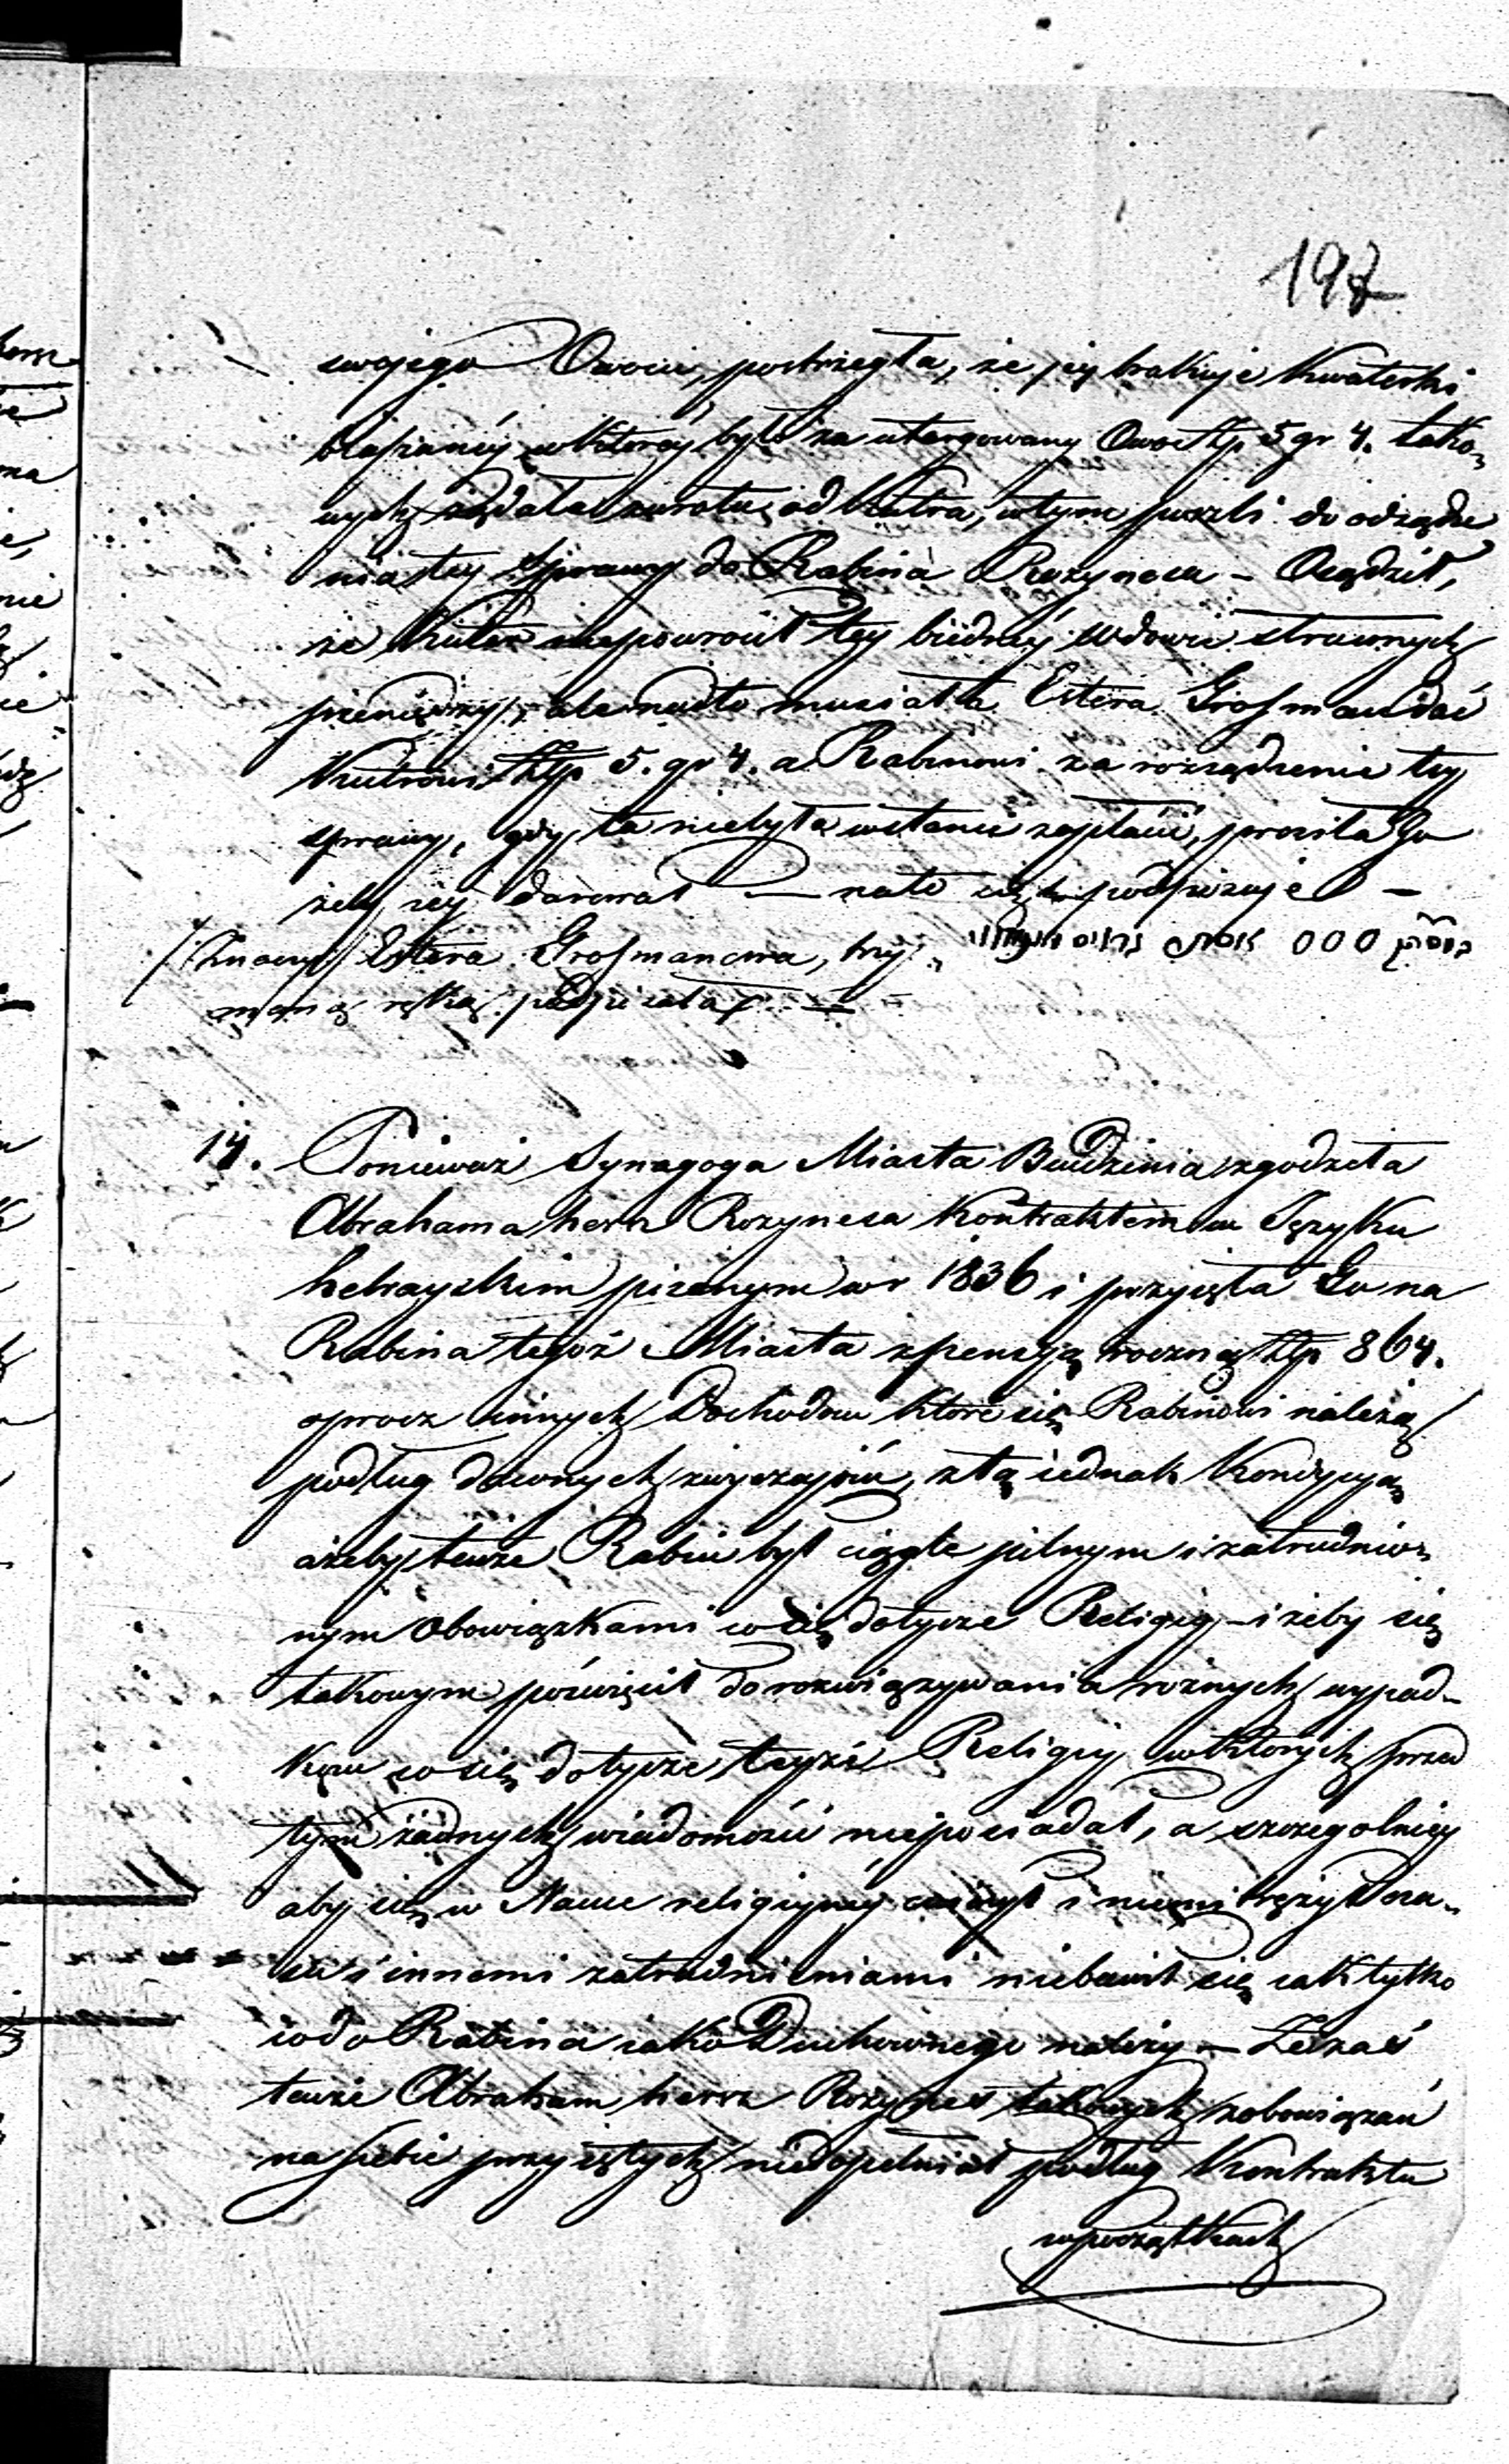 197
swojego Owocu, postrzegła, że jey brakuje Kwaterki
blaszanéy w Któréy było za utargowany Owoc Złp. 5 gr 4. tako„
wych żądała zwrotu od Kutra, wtym poszli do osądze
nia tey Sprawy do Rabina Rozynesa – Osądził,
że Kuter niepowrócił tey biednéy Wdowie straconych
pieniędzy, ale nadto musiała Estera Grosman dać
Kutrowi Złp 5. gr 4. a Rabinowi za rozsądzenie tey
sprawy, gdy ta niebyła wstanie zapłacić, prosiła Go
żeby jéy darował — na to się podpisuje —
/Znaczy/ Estera Grosmanowa, trzy„ 000
maną ręką podpisała/. —
14. Ponieważ Synagoga Miasta Będzinia zgodziła
Abrahama herz Rozynesa Kontraktem w Języku
hebrayskim pisanym w r 1836 i przyięła Go na
Rabina tegoż Miasta z pensyą roczną Złp 864.
oprocz innych Dochodow Które się Rabinowi należą
podług dawnych zwyczajów, z tą iednak Kondycyą
ażeby tenże Rabin był ciągle pilnym i zatrudnio„
nym Obowiązkami co się dotycze Religiy – i żeby się
takowym poświęcił do rozwiązywania rożnych wypad„
Kow co się dotycze teyże Religiy w Ktorych przed
tym żadnych wiadomości nieposiadał, a szczegolniey
aby się w Nauce religiynéy ćwiczył i cza„
su i innemi zatrudnieniami niebawił się iak tylko
co do Rabina iako Duchownego należy – Lecz zaś
tenże Abraham herz Rozynes takowych zobowiązań
na siebie przyiętych niedopełniał podług Kontraktu
w początkach